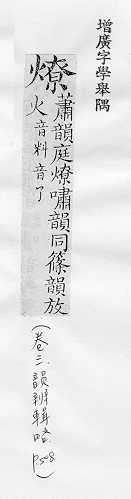 增廣字學舉隅
燎
蕭韻庭燎嘯韻同篠韻放
火音料音了
(卷三.韻辨輯略
P.508)